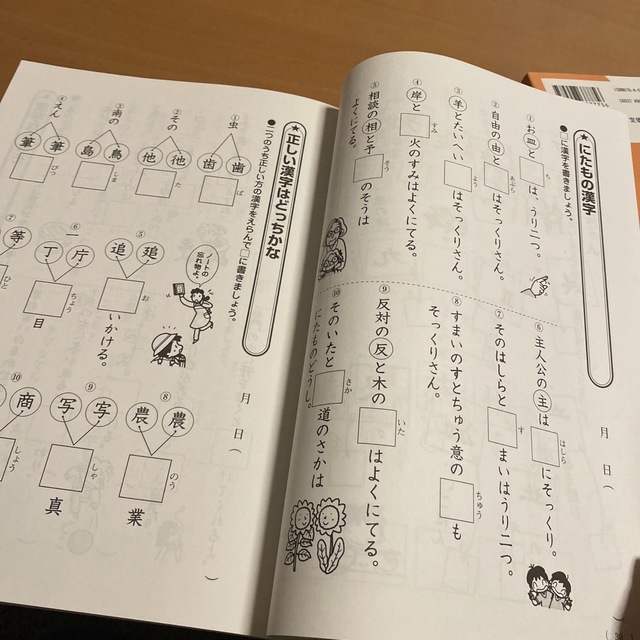 ★にたもの漢字
●□に漢字を書きましょう。
① お皿と□は、うり二つ。
ち
② 自由の由と□はそっくりさん。
あぶら
③ 羊とたいへい□はそっくりさん。
よう
④ 岸と□火のすみはよくにてる。
すみ
⑤ 相談の相と予□のそうは
そう
よくにてる。
月 日(
⑥ 主人公の主は□にそっくり。
はしら
⑦ そのはしらと□まいはうり二つ。
す
⑧ すまいのすとちゅう意の□も
ちゅう
そっくりさん。
⑨ 反対の反と木の□はよくにてる。
いた
⑩ そのいたと□道のさかは
さか
にたものどうし。
★正しい漢字はどっちかな
●二つのうち正しい方の漢字をえらんで□に書きましょう。
① 虫
歯
ば
② その
他
た
③ 南の
島
しま
④ えん
筆
ぴつ
ノートの
忘れ物よ。
⑤
追
お
いかける。
⑥ 一
丁
庁
ちょう
目
⑦
等
ひと
月 日(
⑧
農
のう
業
⑨
写
しゃ
真
⑩
商
しょう